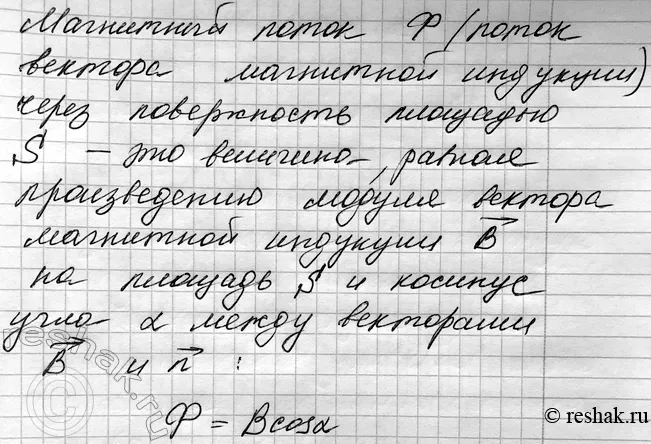 Магнитный поток Ф (поток
вектора магнитной индукции)
через поверхность площадью
S – это величина, равная
произведению модуля вектора
магнитной индукции B⃗
на площадь S и косинус
угла α между векторами
B⃗ и n⃗ :
Ф = Bcosα
reshak.ru
© reshak.ru